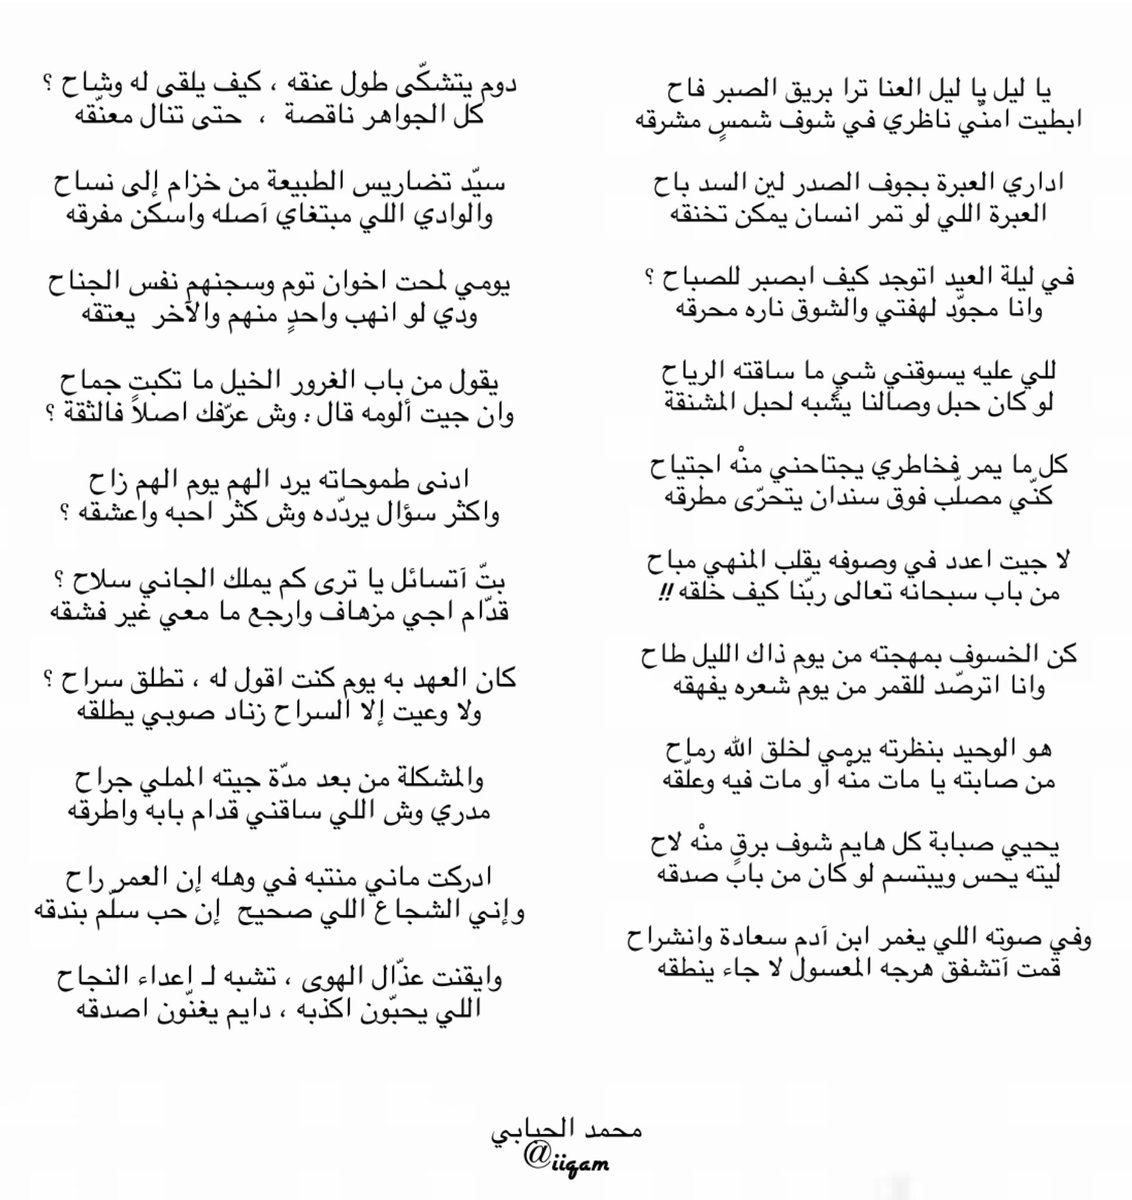 يا ليل يا ليل العنا ترا بريق الصبر فاح
ابطيت امنّي ناظري في شوف شمسٍ مشرقه
اداري العبرة بجوف الصدر لين السد باح
العبرة اللي لو تمر انسان يمكن تخنقه
في ليلة العيد اتوجد كيف ابصبر للصباح ؟
وانا مجوّد لهفتي والشوق ناره محرقه
للي عليه يسوقني شيٍ ما ساقته الرياح
لو كان حبل وصالنا يشّبه لحبل المشنقة
كل ما يمر فخاطري يجتاحني منْه اجتياح
كنّي مصلّب فوق سندان يتحرّى مطرقه
لا جيت اعدد في وصوفه يقلب المنهي مباح
من باب سبحانه تعالى ربّنا كيف خلقه !!
كن الخسوف بمهجته من يوم ذاك الليل طاح
وانا اترصّد للقمر من يوم شعره يفهقه
هو الوحيد بنظرته يرمي لخلق الله رماح
من صابته يا مات منْه أو مات فيه وعلّقه
يحيي صبابة كل هايم شوف برقٍ منْه لاح
ليته يحس ويبتسم لو كان من باب صدقه
وفي صوته اللي يغمر ابن آدم سعادة وانشراح
قمت آتشفق هرجه المعسول لا جاء ينطقه
دوم يتشكّى طول عنقه ، كيف يلقى له وشاح ؟
كل الجواهر ناقصة ، حتى تنال معنّقه
سيّد تضاريس الطبيعة من خزام إلى نساح
والوادي اللي مبتغاي آصله واسكن مفرقه
يومي لمحت اخوان توم وسجنهم نفس الجناح
ودي لو انهب واحدٍ منهم والآخر يعتقه
يقول من باب الغرور الخيل ما تكبت جماح
وان جيت ألومه قال : وش عرّفك اصلاً فالثقة ؟
ادنى طموحاته يرد الهم يوم الهم زاح
واكثر سؤال يردّده وش كثر احبه واعشقه ؟
بتّ آتسائل يا ترى كم يملك الجاني سلاح ؟
قدّام اجي مزهاف وارجع ما معي غير فشقه
كان العهد به يوم كنت اقول له ، تطلق سراح ؟
ولا وعيت إلا السراح زناد صوبي يطلقه
والمشكلة من بعد مدّة جيته الملي جراح
مدري وش اللي ساقني قدام بابه واطرقه
ادركت ماني منتبه في وهله إن العمر راح
وإني الشجاع اللي صحيح إن حب سلّم بندقه
وايقنت عذّال الهوى ، تشبه لـ اعداء النجاح
اللي يحبّون اكذبه ، دايم يغنّون اصدقه
محمد الحبابي
@iiqam